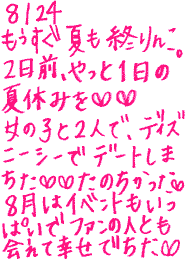 8/24
もうすぐ夏も終りんこ。
2日前、やっと1日の
夏休みを♡♡
女の子と2人で、ディズ
ニーシーでデートしま
ちた♡♡たのちかった♡
8月はイベントもいっ
ぱいでファンの人とも
会れて幸せでちた♡